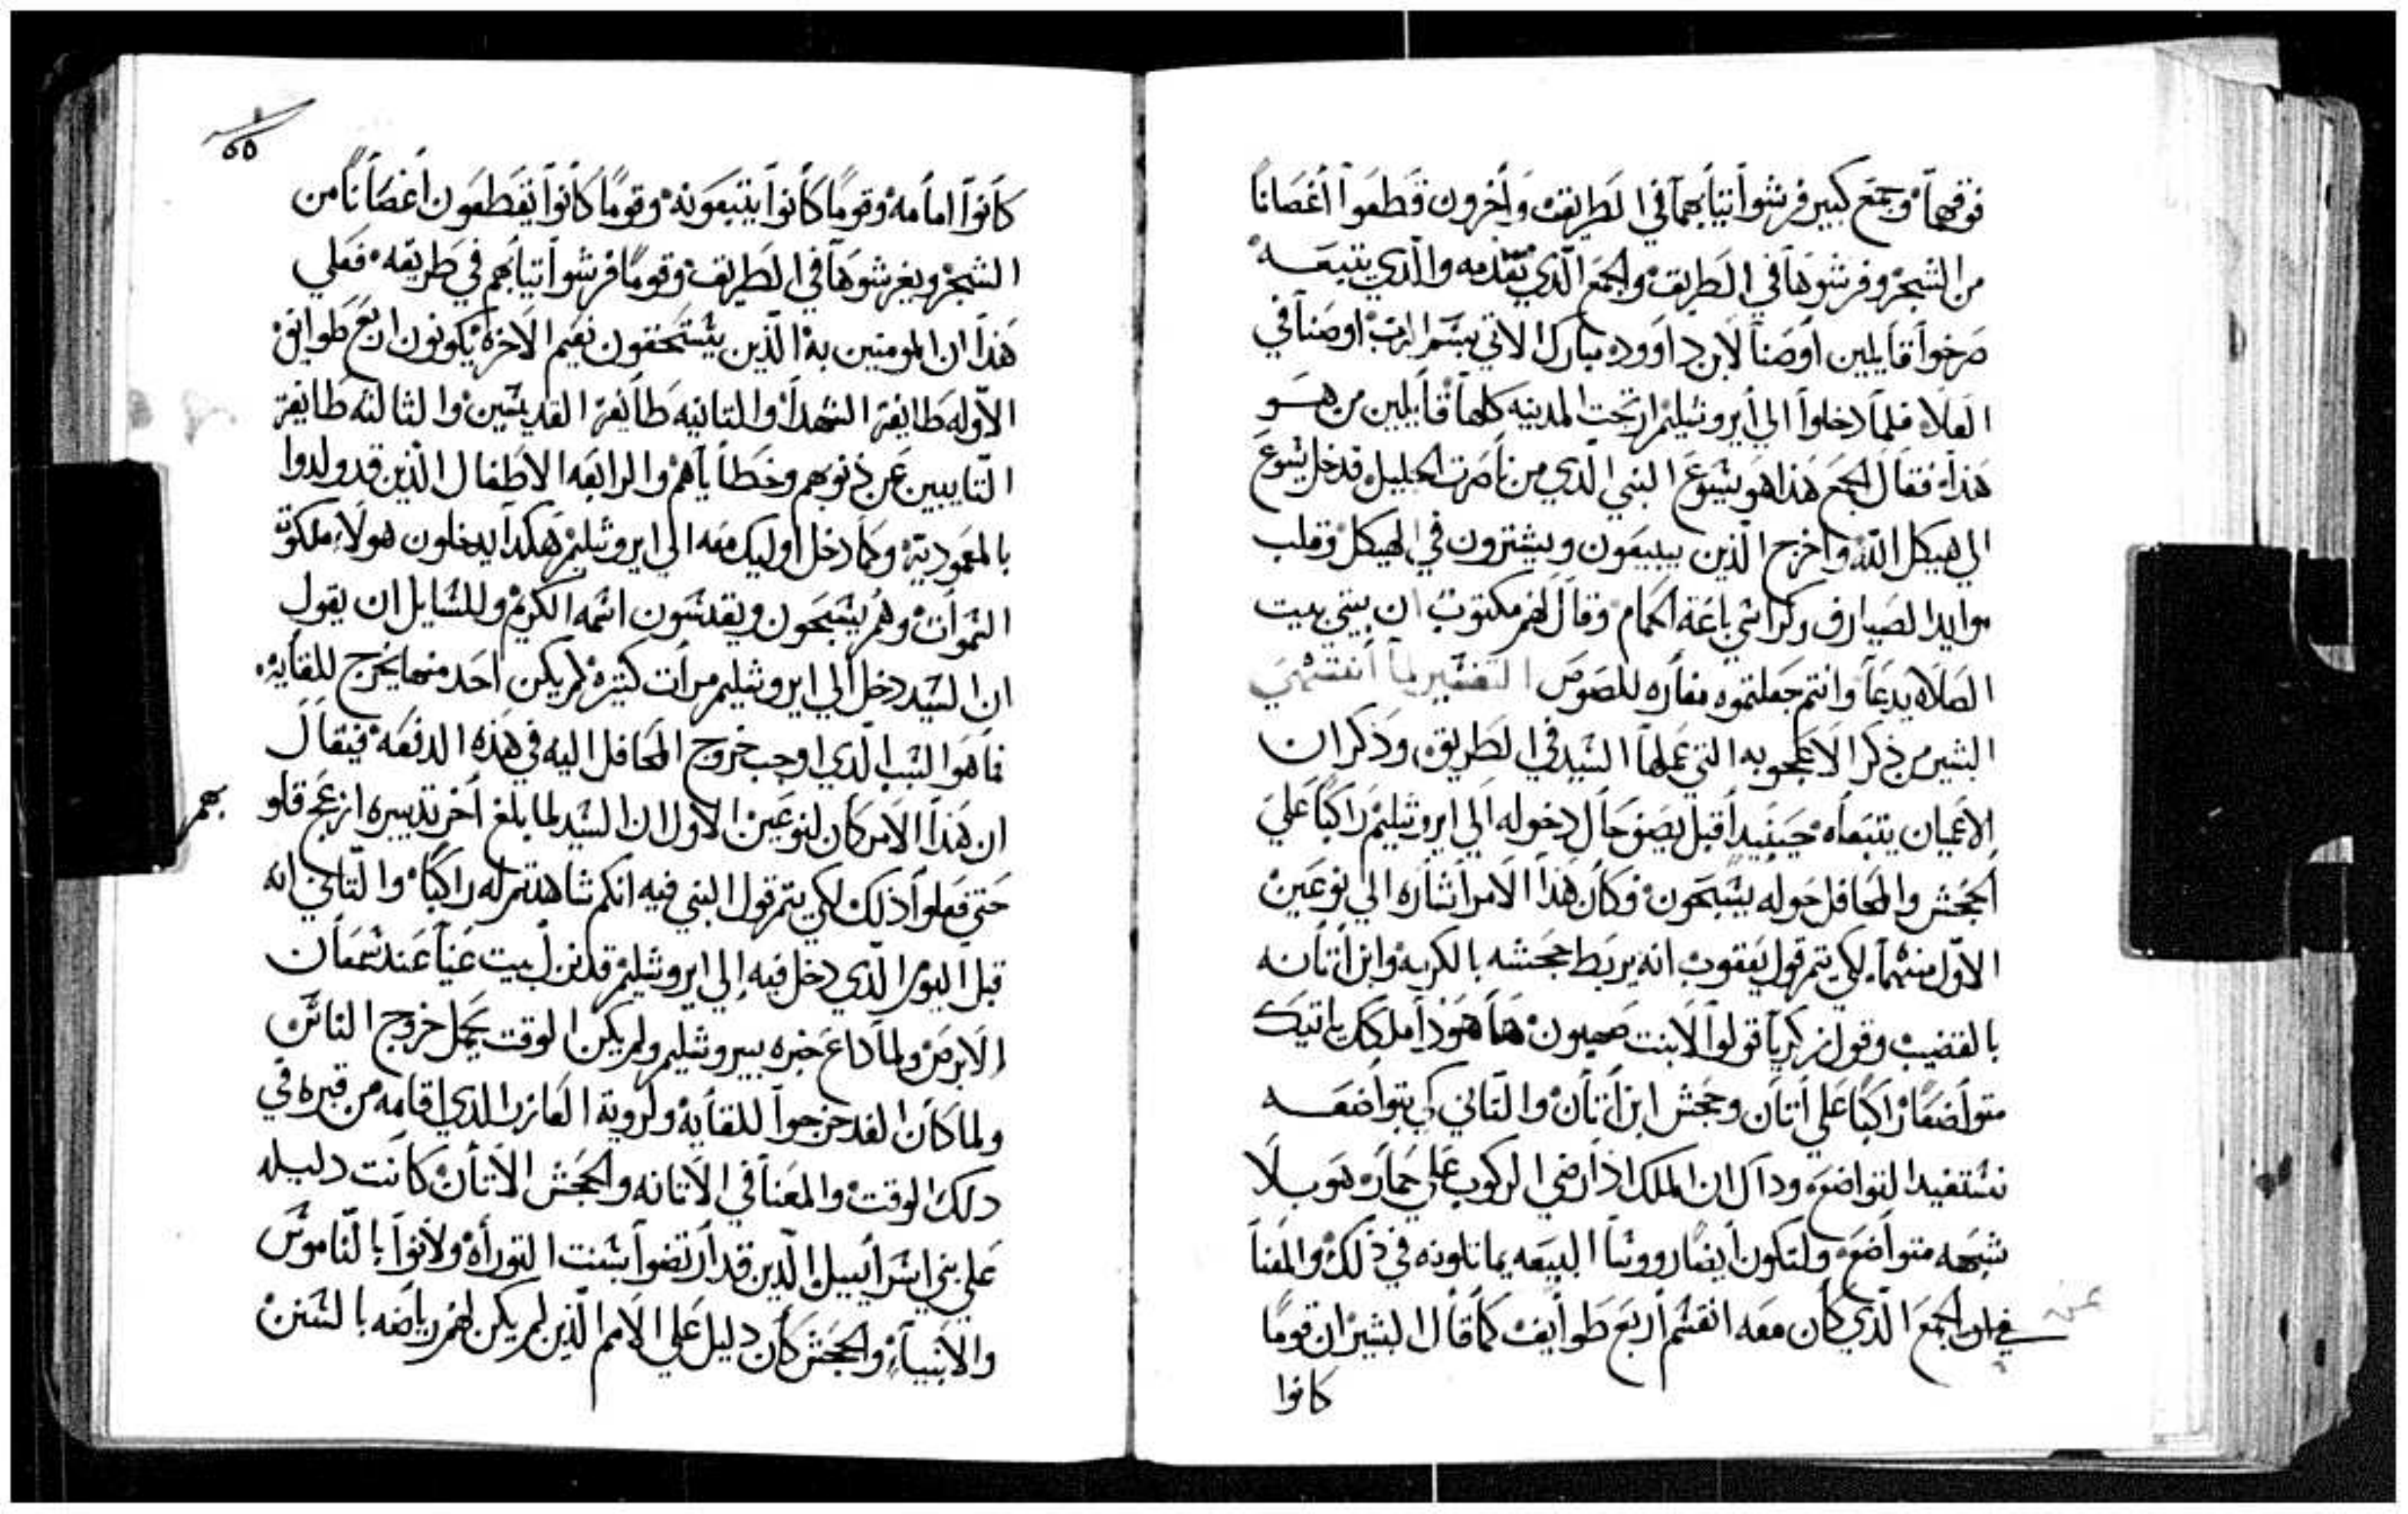 فوقهما وجمع كبير فرشوا تيابهم في الطريق وأخرون قطعوا أغصانا
من الشجر وفرشوها في الطريق والجمع الذي تقدمه والذي يتبعه
صرخوا قايلين أوصنا لابن داوود مبارك الاتي بسم الرب اوصنا في
العلا فلما دخلوا الي أيروشليم ارتجت المدينه كلها قايلين من هو
هذا فقال الجمع هذا هو يشوع النبي الذي من ناصرت الجليل فدخل يشوع
الي هيكل الله وأخرج الذين يبيعون ويشترون في الهيكل وقلب
موايد الصيارف وكراشي باعة الحمام وقال لهم مكتوب ان بيتي بيت
الصلاه يدعا وانتم جعلتموه مغاره للصوص التفسير لما أنتهي
البشير من ذكر الاعجوبه التي عملها السيد في الطريق وذكر ان
الاعميان يتبعاه حينيد أقبل يصف حال دخوله الي ايروشليم راكبا علي
الجحش والمحافل حوله يسبحون وكان هذا الامر اشاره الي نوعين
الاول منهما لكي يتم قول يعقوب انه يربط جحشه بالكرمه وابن أتانه
بالقضيب وقول زكريا قولوا لابنت صهيون ها هودا ملكك ياتيك
متواضعا راكبا علي أتان وجحش ابن أتان والتاني كي بتواضعه
نستفيد التواضع ودال ان الملك اذا رضي الركوب علي حماره هو بلا
شبهه متواضع ولتكون أيضا رووسا البيعه يماتلونه في ذلك والمعنا
في ان الجمع الذي كان معه انقسم أربع طوايف كما قال البشير ان قوما
كانوا
٥٥
كانوا امامه وقوما كانوا يتبعونه وقوما كانوا يقطعون أغصانا من
الشجر ويفرشوها في الطريق وقوما فرشوا تيابهم في طريقه فعلي
هذا ان المومنين به الذين يستحقون نعيم الاخرة يكونون اربع طوايف
الاوله طايفة الشهدا والتانيه طايفة القديسين والثالثه طايفة
التايبين عن ذنوبهم وخطاياهم والرابعه الاطفال الذين قد ولدوا
بالمعموديه وكما دخل اوليك معه الي ايروشليم هكدا يدخلون هولاء ملكوت
السموات وهم يسبحون ويقدسون اسمه الكريم وللسايل ان يقول
ان السيد دخل الي ايروشليم مرات كتيرة لم يكن احد منها يخرج للقايه
فما هو السبب الدي اوجب خروج المحافل اليه في هذه الدفعه فيقال
ان هذا الامر كان لنوعين الاول ان السيد لما بلغ أخر تدبيره ازعج قلو
بهم
حتي فعلوا ذلك لكي يتم قول النبي فيه انكم شاهدتم له راكبا والتاني انه
قبل اليوم الذي دخل فيه إلي ايروشليم قد نزل بيت عنيا عند شمعان
الابرص ولما داع خبره بيروشليم ولم يكن الوقت يحمل خروج الناس
ولما كان الغد خرجوا للقايه ولروية العازر الذي اقامه من قبره في
دلك الوقت والمعنا في الاتانه والجحش الاتان كانت دليله
علي بني اسراييل الذين قد أرتضوا بسنت التوراه ولانوا بالناموس
والانبياء والجحش كان دليل علي الامم الذين لم يكن لهم رياضه بالسنن